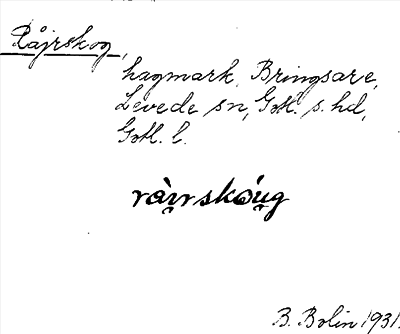 Råjrskog,
hagmark, Bringsare,
Levede sn, Gotl. s. hd,
Gotl. l.
rȧi̯rskȯu̯g
B. Bolin 1931.